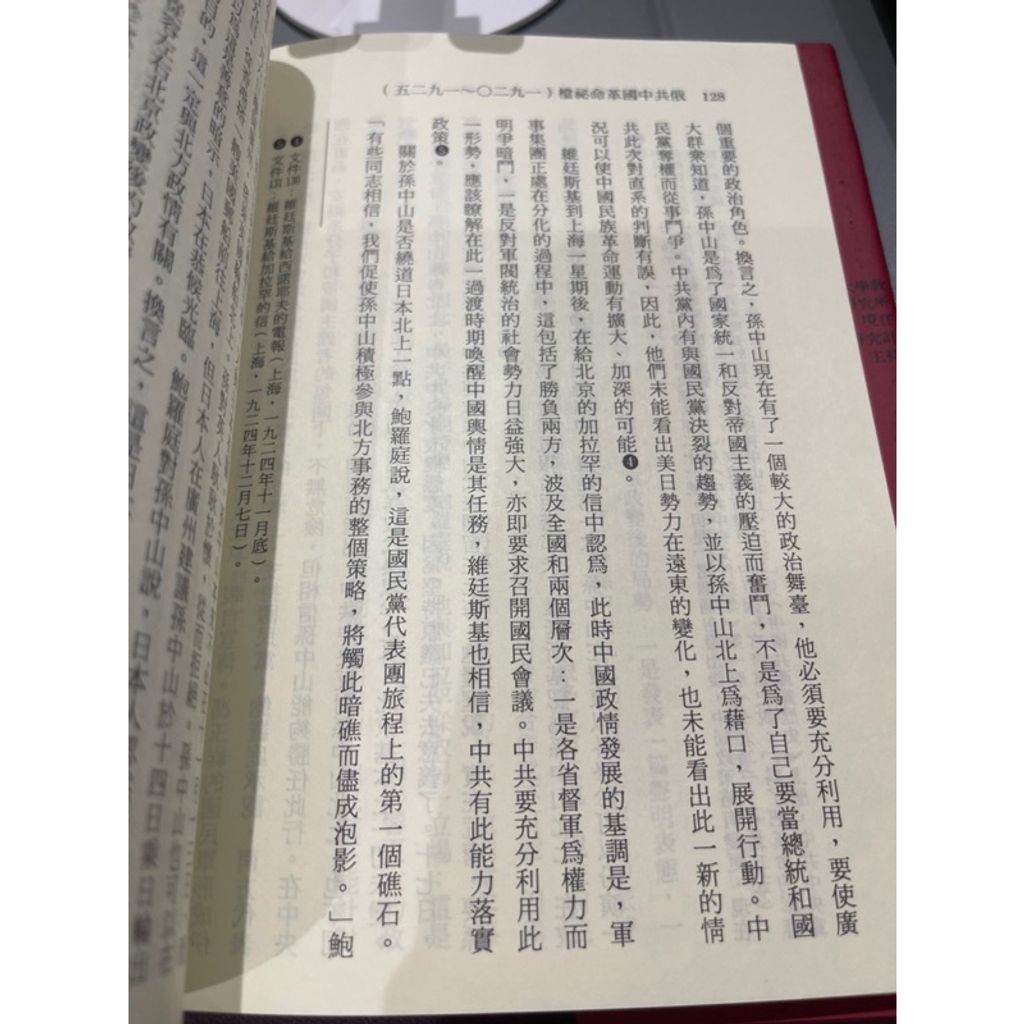 128　俄共中國革命祕檔（一九二〇～一九二五）
個重要的政治角色。換言之，孫中山現在有了一個較大的政治舞臺，他必須要充分利用，要使廣
大群衆知道，孫中山是爲了國家統一和反對帝國主義的壓迫而奮鬥，不是爲了自己要當總統和國
民黨奪權而從事鬥爭。中共黨內有與國民黨決裂的趨勢，並以孫中山北上爲藉口，展開行動。中
共此次對直系的判斷有誤，因此，他們未能看出美日勢力在遠東的變化，也未能看出此一新的情
況可以使中國民族革命運動有擴大、加深的可能❹。
維廷斯基到上海一星期後，在給北京的加拉罕的信中認爲，此時中國政情發展的基調是，軍
事集團正處在分化的過程中，這包括了勝負兩方，波及全國和兩個層次：一是各省督軍爲權力而
明爭暗鬥，一是反對軍閥統治的社會勢力日益強大，亦即要求召開國民會議。中共要充分利用此
一形勢，應該瞭解在此一過渡時期喚醒中國輿情是其任務，維廷斯基也相信，中共有此能力落實
政策❺。
關於孫中山是否繞道日本北上一點，鮑羅庭說，這是國民黨代表團旅程上的第一個礁石。
「有些同志相信，我們促使孫中山積極參與北方事務的整個策略，將觸此暗礁而儘成泡影。」鮑
❹ 文件130：維廷斯基給西諾耶夫的電報（上海，一九二四年十一月底）。
❺ 文件131：維廷斯基給加拉罕的信（上海，一九二四年十二月七日）。
的，這一定與北方政情有關。換言之，
日本在恭候光臨。鮑羅庭對孫中山說，日本人
但日本人在廣州建議孫中山於十四日乘日輪